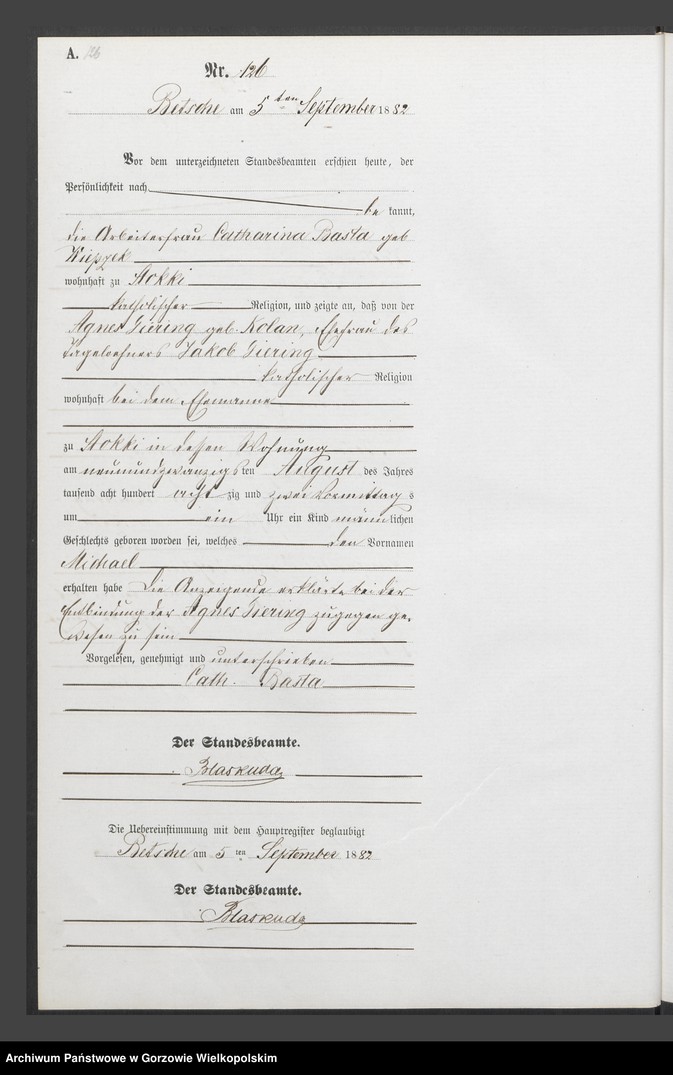 A. 126
Nr. 126
Betsche am 5 ten September 1882
Vor dem unterzeichneten Standesbeamten erschien heute, der
Persönlichkeit nach
be kannt,
die Arbeiterfrau Catharina Basta geb
wohnhaft zu Stokki
katholischer Religion, und zeigte an, daß von der
Agnes Giering geb. Kolan, Ehefrau des
Tageloehners Jakob Giering
katholischer Religion
wohnhaft bei dem Ehemanne
zu Stokki in dessen Wohnung
am neunundzwanzigs ten August des Jahres
tausend acht hundert acht zig und zwei Vormittag s
um ein Uhr ein Kind männ lichen
Geschlechts geboren worden sei, welches den Vornamen
Michael
erhalten habe Die Anzeigende erklärte bei der
Entbindung der Agnes Giering zugegen ge-
wesen zu sein
Vorgelesen, genehmigt und unterschrieben
Cath. Basta
Der Standesbeamte.
Blaskuda
Die Uebereinstimmung mit dem Hauptregister beglaubigt
Betsche am 5 ten September 1882
Der Standesbeamte.
Blaskuda
Archiwum Państwowe w Gorzowie Wielkopolskim